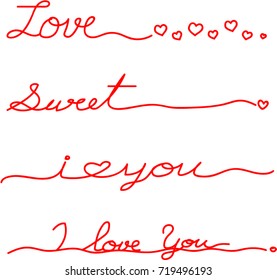 Love
Sweet
i♡you
I love You
shutterstock.com · 719496193